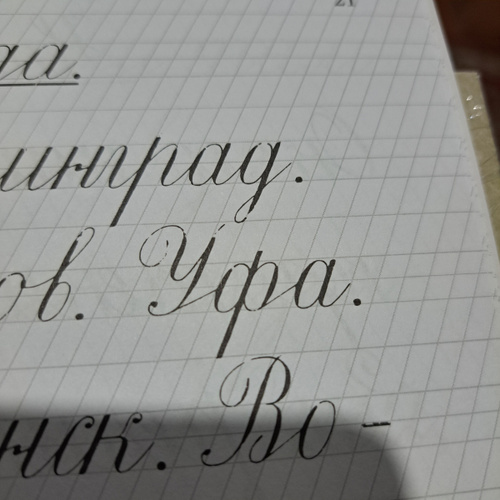 да.
инград.
ов. Уфа.
нск. Во-